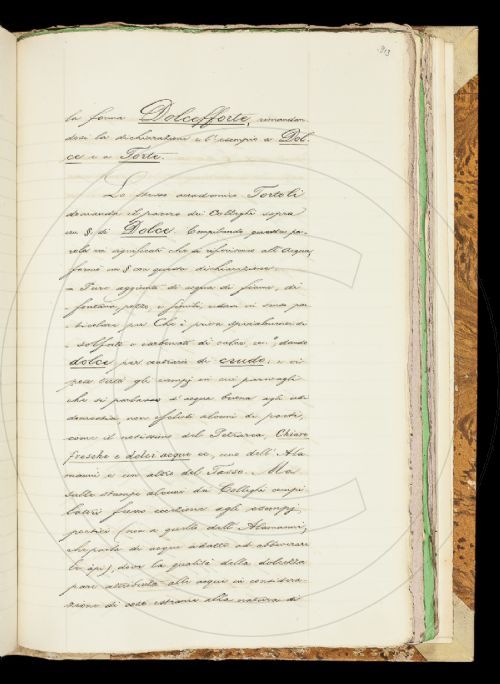 313
la forma Dolcefforte, rimandan-
dosi la dichiarazione e l'esempio a Dol-
ce e a Forte.
Lo stesso accademico Tortoli
domanda il parere dei Colleghi sopra
un §. di Dolce. Compilando questa pa-
rola nei significati che si riferiscono all'acqua,
formò un § con questa dichiarazione:
Pure aggiunto di acqua di fiume, di
fontana, pozzo, e simili, e
per Che è priva
solfato e carbonato di calce, ec.
dolce per contrario di cruda; e vi
pose tutti gli esempj in cui parevagli
che si parlasse d'acqua buona agli usi
domestici, non esclusi alcuni di poeti,
come il notissimo del Petrarca, Chiare
fresche e dolci acque ec, uno dell'Ala-
manni e un altro del Tasso. Ma
sulle stampe alcuni dei Colleghi compi-
latori fecero eccezione agli esempj
poetici (non a quello dell'Alamanni,
che parla di acque adatte ad abbeverare
le api), dove la qualità della dolcezza
pare attribuita alle acque in considera-
zione di cose estranee alla natura di